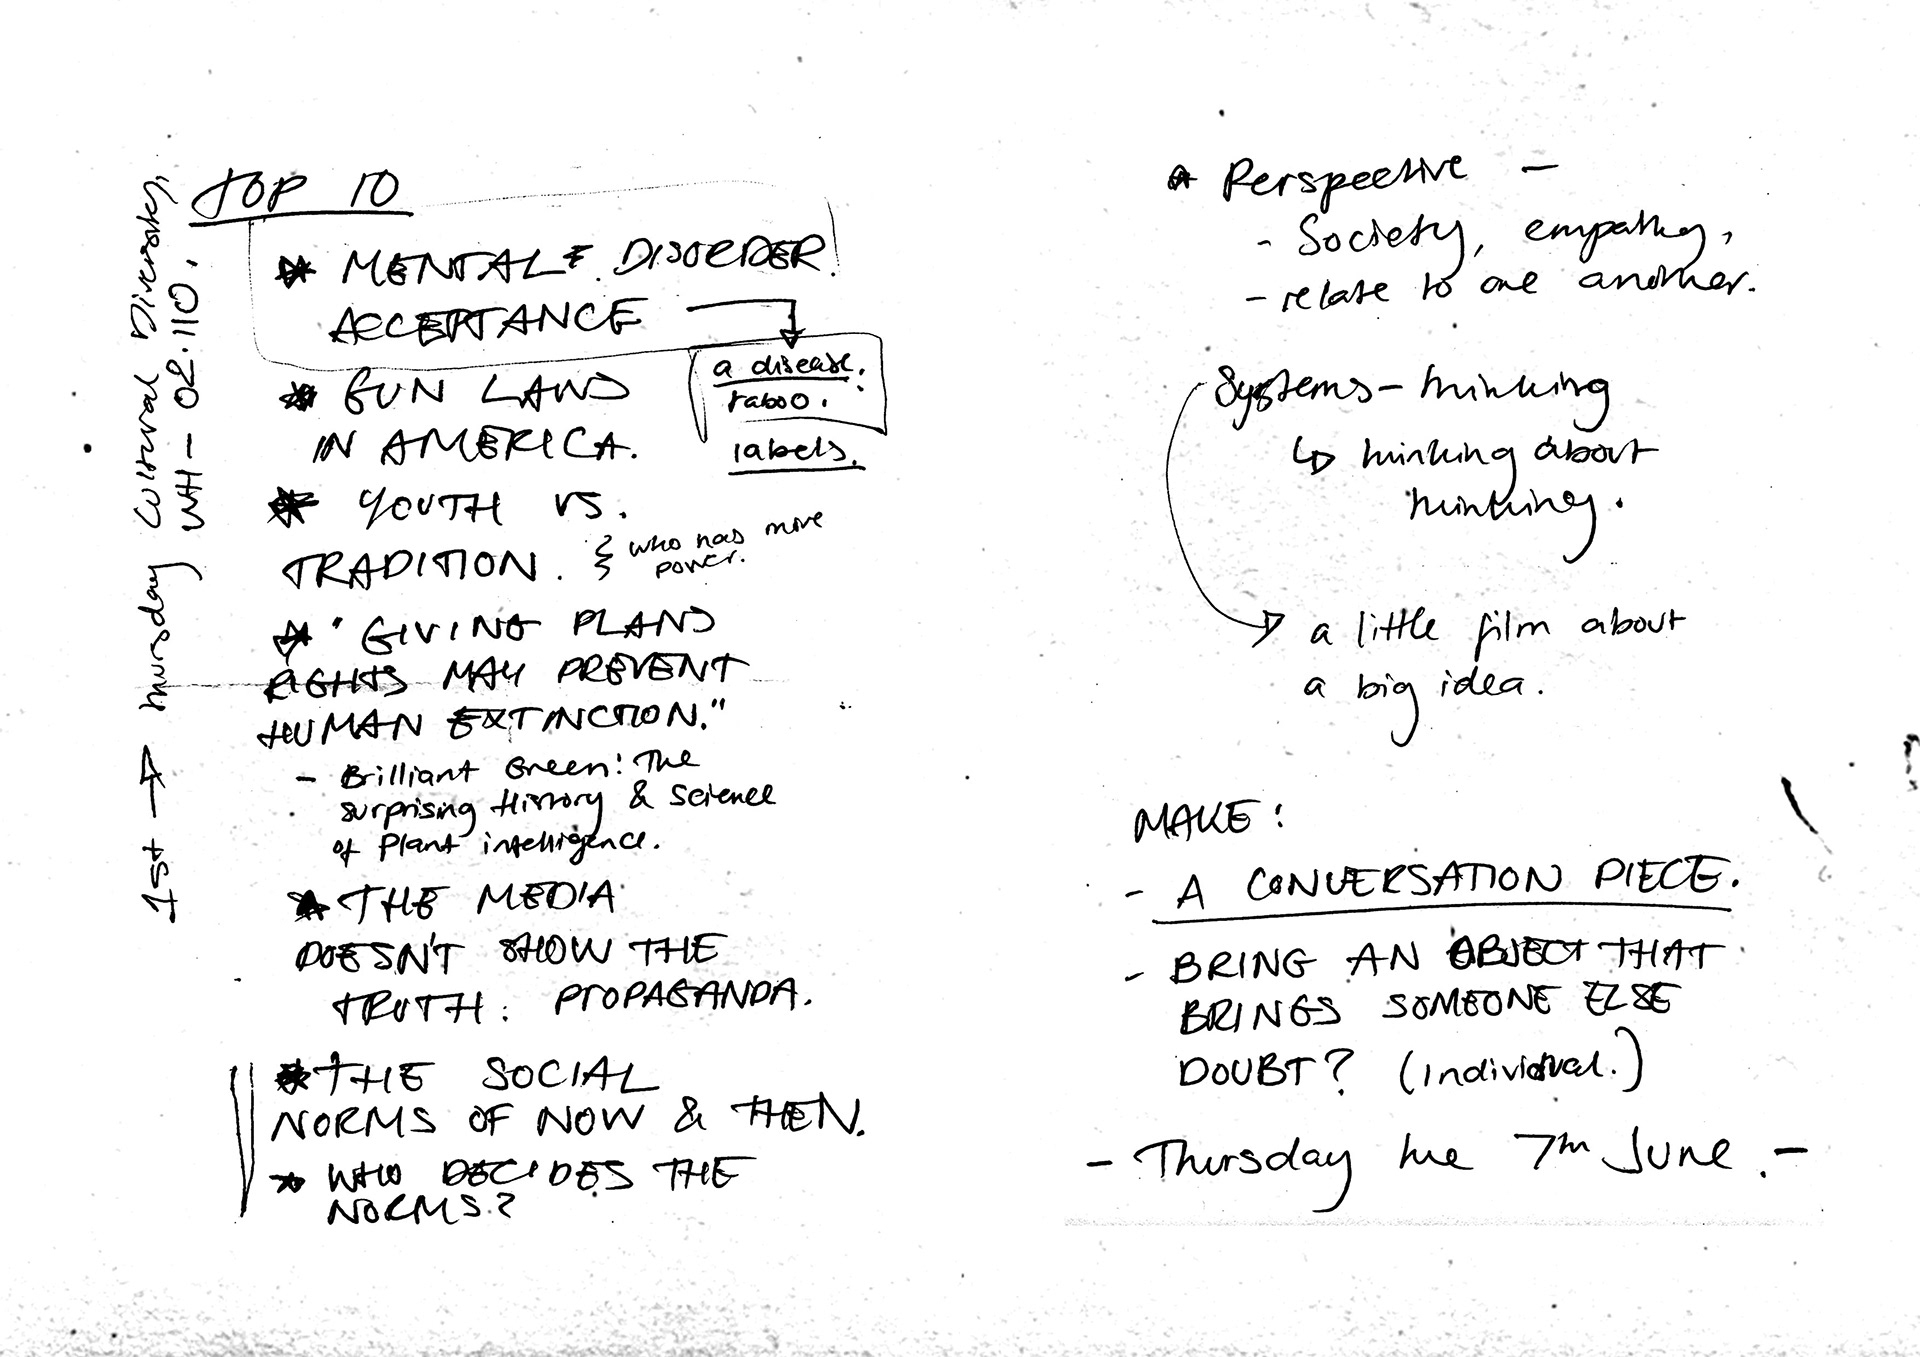 TOP 10
* MENTAL DISORDER.
ACCEPTANCE
a disease.
taboo.
labels.
* GUN LAWS
IN AMERICA.
* YOUTH VS.
TRADITION.
who has more
power.
* "GIVING PLANTS
RIGHTS MAY PREVENT
HUMAN EXTINCTION."
- Brilliant Green: The
surprising History & Science
of Plant intelligence.
* THE MEDIA
DOESN'T SHOW THE
TRUTH: PROPAGANDA.
* THE SOCIAL
NORMS OF NOW & THEN.
* WHO DECIDES THE
NORMS?
1st → Thursday Cultural Diversity,
WH - 02.110.
* Perspective -
- Society, empathy,
- relate to one another.
Systems - thinking
↳ thinking about
thinking.
→ a little film about
a big idea.
MAKE:
- A CONVERSATION PIECE.
- BRING AN OBJECT THAT
BRINGS SOMEONE ELSE
DOUBT? (individual.)
- Thursday the 7th June. -